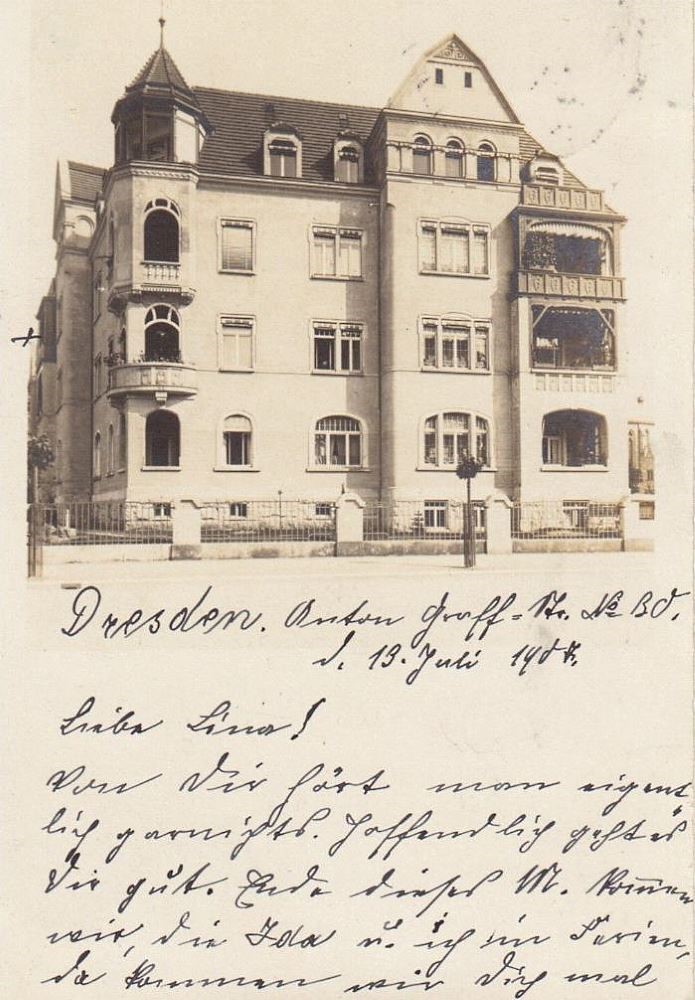 Dresden. Anton Graff=Str. No 30.
d. 13. Juli 1907.
Liebe Lina!
Von Dir hört man eigent
lich garnichts. Hoffendlich geht es
Dir gut. Ende dieses M. kommen
wir, die Ida u. ich in Ferien,
da kommen wir Dich mal